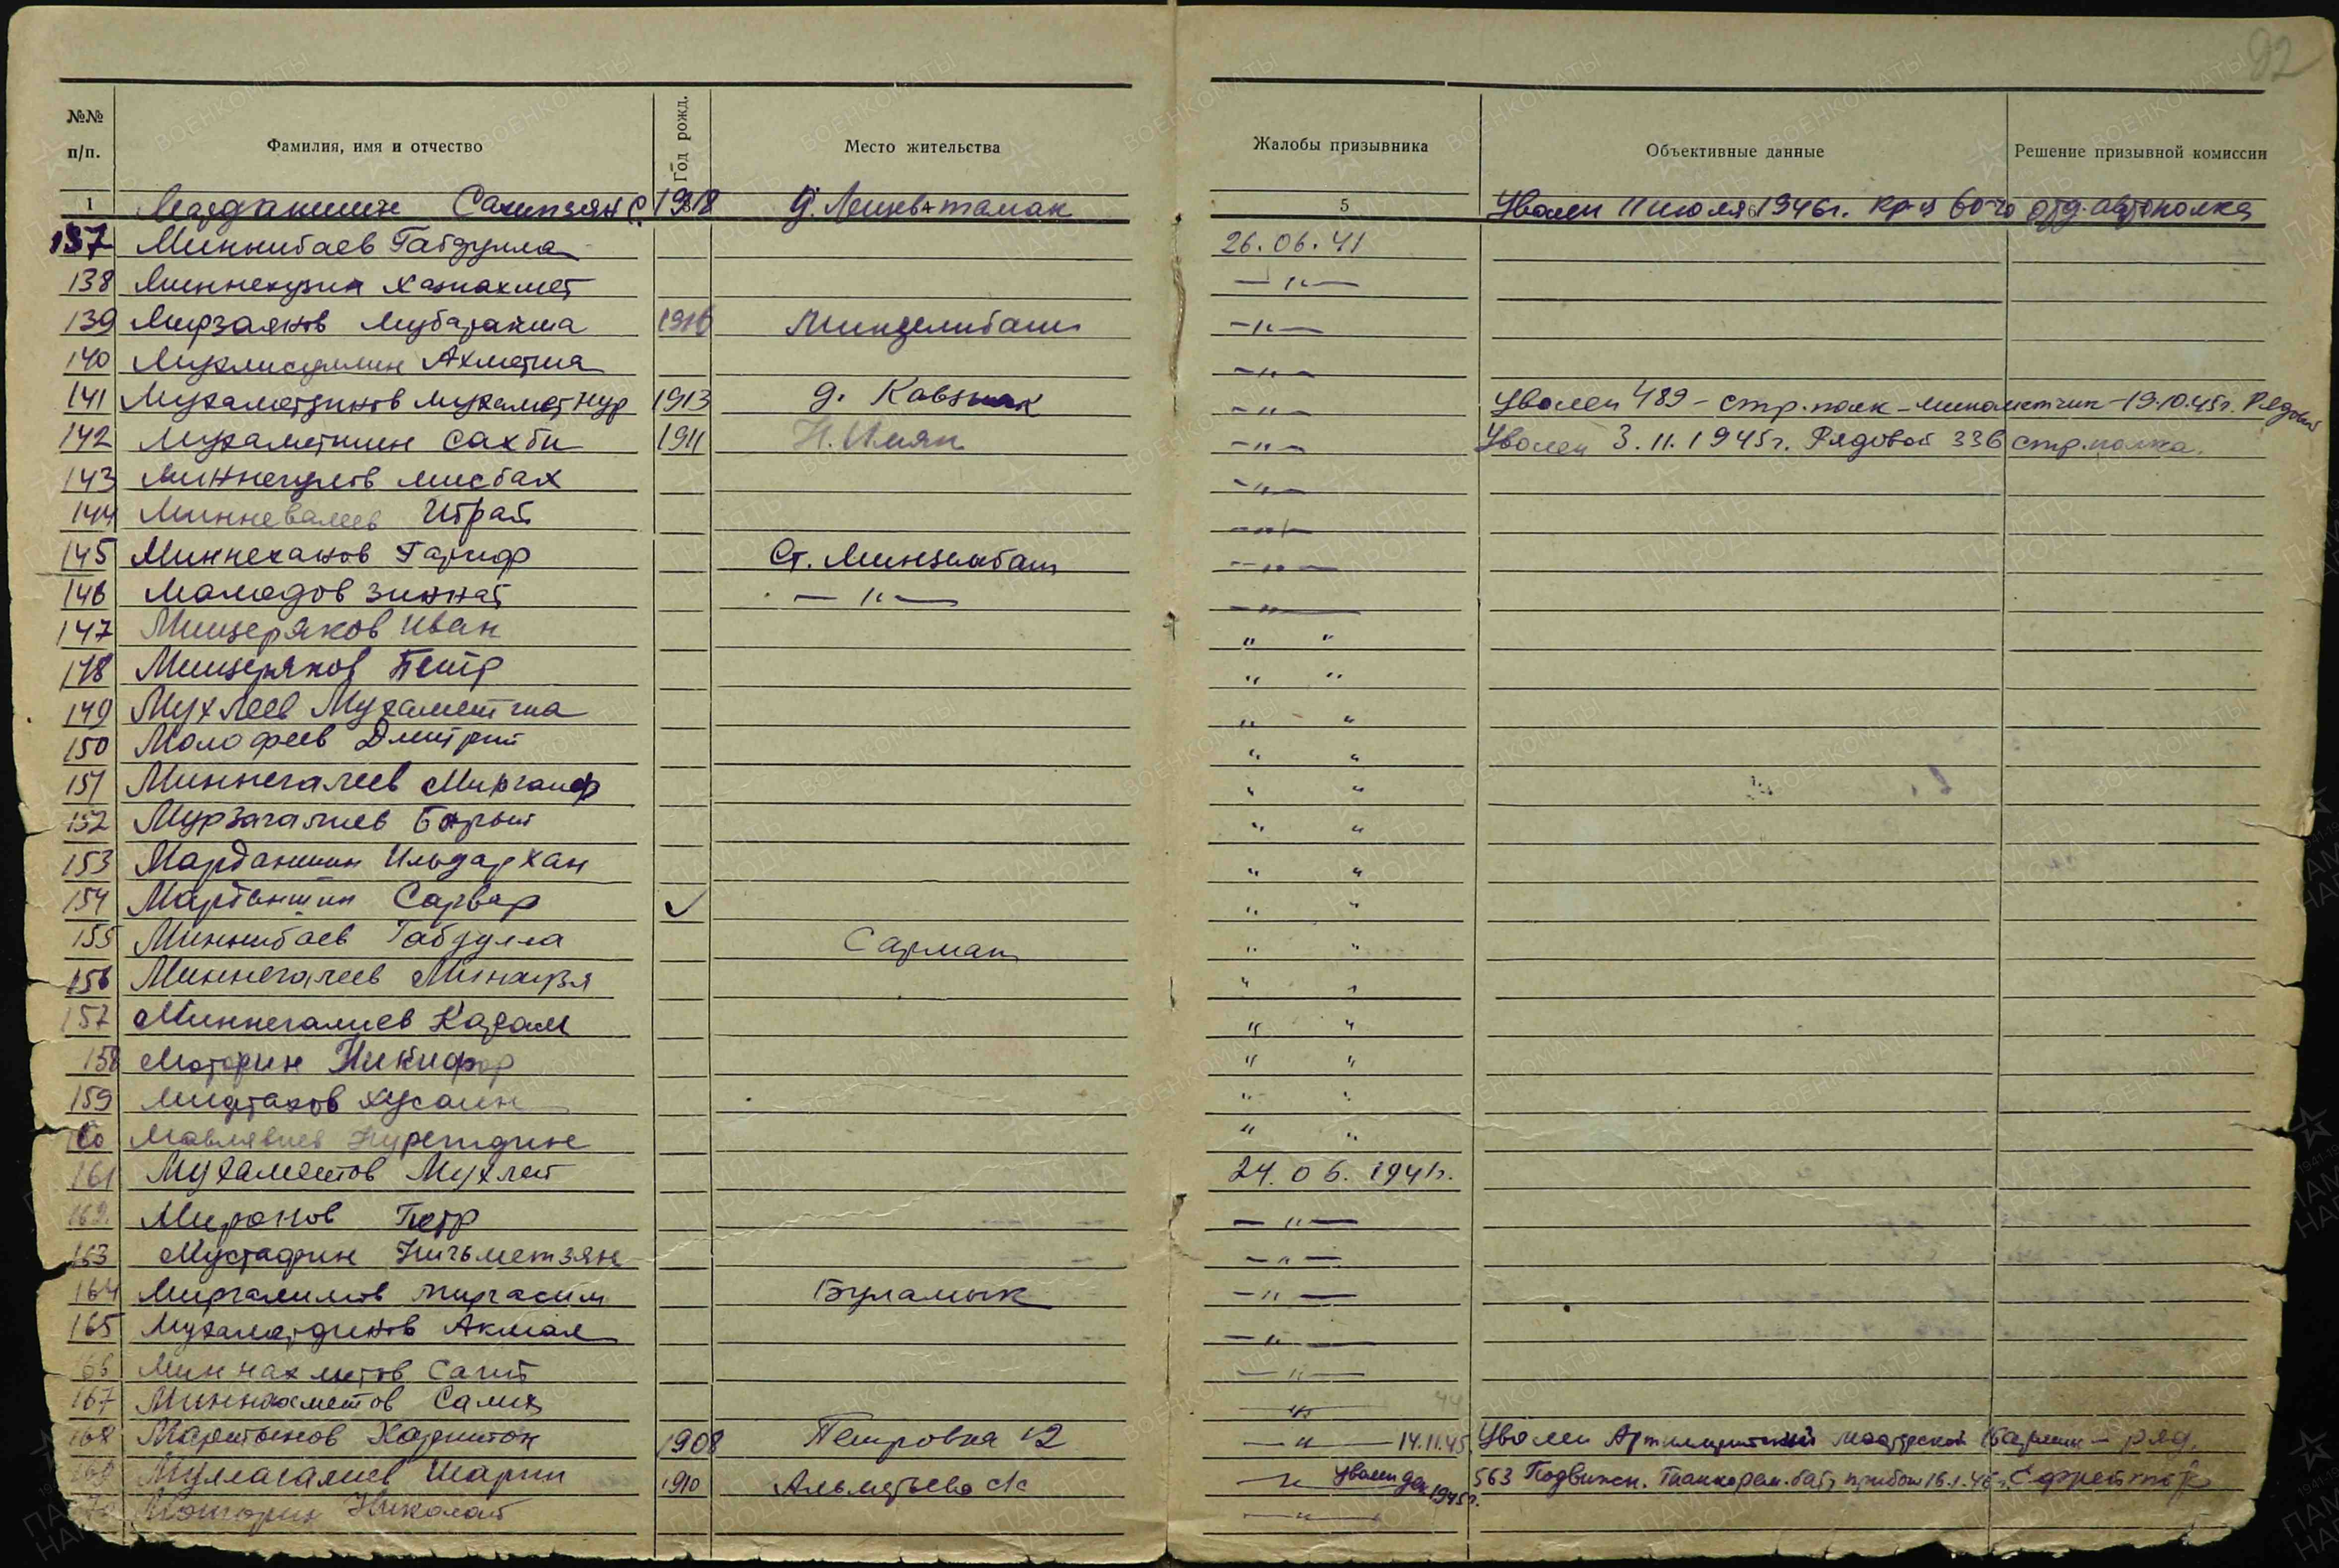 92
№№ п/п. Фамилия, имя и отчество Год рожд. Место жительства Жалобы призывника Объективные данные Решение призывной комиссии
1 3 5 6
Марданшин Сахипзян С. 1918 д. Лешев-тамак Уволен 11 июля 1946г. кр-ц 60го отд. автополка
137 Миннибаев Габдулла 26.06.41
138 Миннекузин Хазиахмет —"—
139 Мирзаянов Мубаракша 1916 Минзелибаш —"—
140 Муклисуллин Ахметша —"—
141 Мухаметзинов Мухаметнур 1913 д. Кавзияк —"— Уволен 489 - стр. полк - минометчик - 19.10.45г. Рядовой
142 Мухаметшин Сахби 1911 Н. Имян —"— Уволен 3.11.1945г. Рядовой 336 стр. полка.
143 Миннегулов Мисбах —"—
144 Минневалеев Ибрай —"—
145 Миннеханов Гариф Ст. Минзелабаш —"—
146 Мамадов Зиннат —"— —"—
147 Мищеряков Иван " "
148 Мищеряков Петр " "
149 Мухлеев Мухаметша " "
150 Малафеев Дмитрий " "
151 Миннегалеев Миргаиф " "
152 Мурзагалиев Барый " "
153 Марданшин Ильдархан " "
154 Марданшин Сарвар ✓ " "
155 Миннибаев Габдулла Сарман " "
156 Миннегалеев Минаизя " "
157 Миннегалиев Кадам " "
158 Маторин Никифор " "
159 Мифтахов Хусаин " "
160 Мавлявиев Нуретдине " "
161 Мухаметов Мухлей 24.06.1941г.
162. Миронов Петр —"—
163 Мустафин Нигъметзян —"—
164 Миргалимов Миргасим Буламык —"—
165 Мухаметдинов Акмал —"—
166 Миннахметов Сагит —"—
167 Миннахметов Салих —"— 44
168 Мартынов Харитон 1908 Петровка 12 —"— 14.11.45 Уволен Артиллритский мастерской - ряд.
169 Муллагалиев Шарип 1910 Альметьево с/с —"— Уволен дек 1945г. 563 Подвижн. Танкорем. бат. прибыл 16.1.46г. Ефрейтор
170 Николай —"—